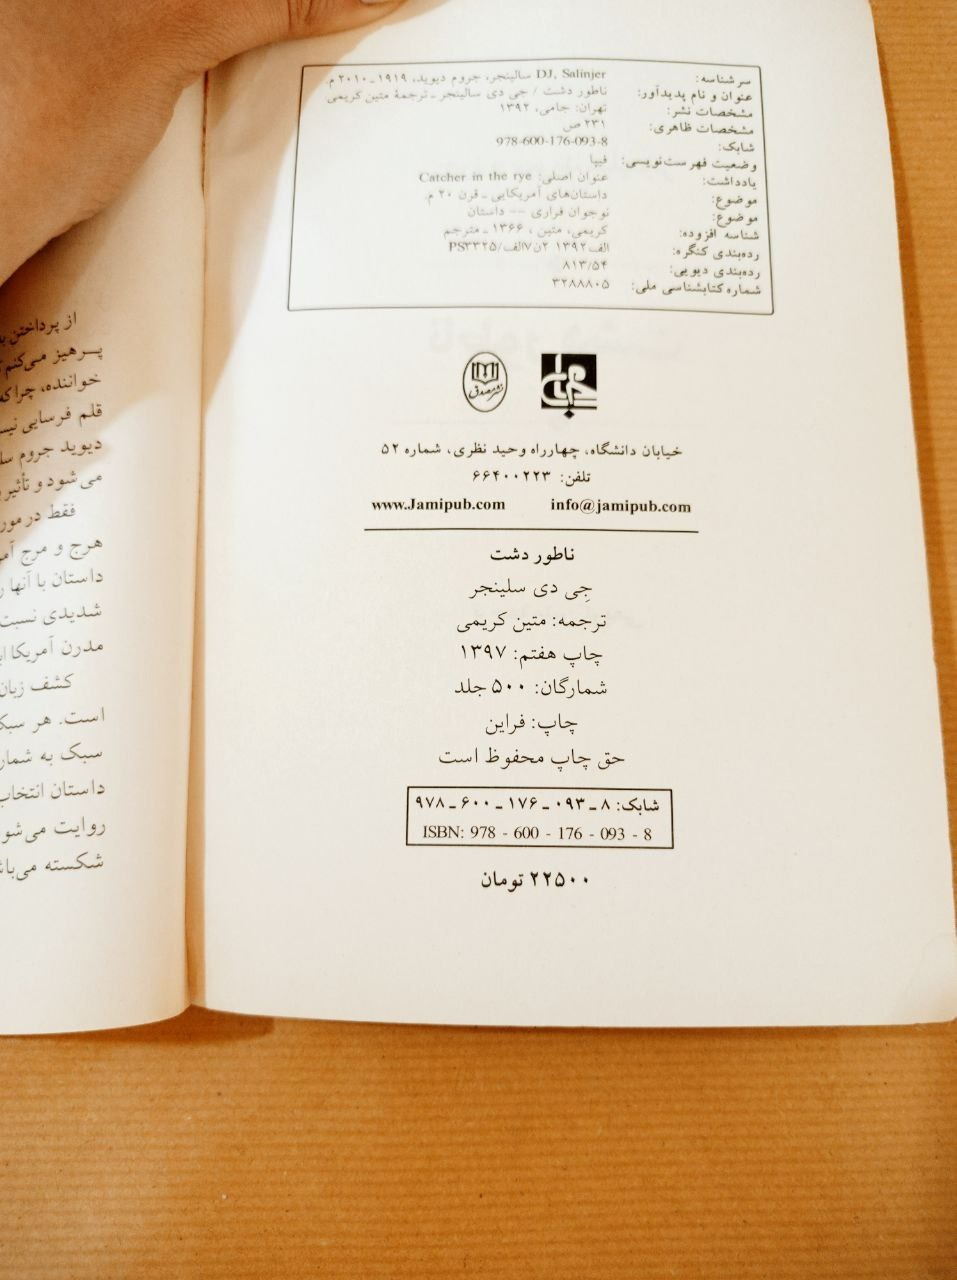 سرشناسه: سالینجر، جروم دیوید، ۱۹۱۹ـ۲۰۱۰ م. DJ, Salinjer
عنوان و نام پدیدآور: ناطور دشت / جی دی سالینجر ـ ترجمهٔ متین کریمی
مشخصات نشر: تهران: جامی، ۱۳۹۲
مشخصات ظاهری: ۲۳۱ ص
شابک: 978-600-176-093-8
وضعیت فهرست‌نویسی: فیپا
یادداشت: عنوان اصلی: Catcher in the rye
موضوع: داستان‌های آمریکایی ـ قرن ۲۰ م.
موضوع: نوجوان فراری -- داستان
شناسه افزوده: کریمی، متین ، ۱۳۶۶ ـ مترجم
رده‌بندی کنگره: PS۳۳۲۵/الف۷ن۲ ۱۳۹۲الف
رده‌بندی دیویی: ۸۱۳/۵۴
شماره کتابشناسی ملی: ۳۲۸۸۸۰۵
خیابان دانشگاه، چهارراه وحید نظری، شماره ۵۲
تلفن: ۶۶۴۰۰۲۲۳
www.Jamipub.com info@jamipub.com
ناطور دشت
جِی دی سلینجر
ترجمه: متین کریمی
چاپ هفتم: ۱۳۹۷
شمارگان: ۵۰۰ جلد
چاپ: فراین
حق چاپ محفوظ است
شابک: ۸ ـ ۰۹۳ ـ ۱۷۶ ـ ۶۰۰ ـ ۹۷۸
ISBN: 978 - 600 - 176 - 093 - 8
۲۲۵۰۰ تومان
از پرداختن
پرهیز می‌کنم
خواننده، چرا که
قلم فرسایی
دیوید جروم
می شود و تأثیر
فقط در
هرج و مرج
داستان با آنها
شدیدی نسبت
مدرن آمریکا
کشف زبان
است. هر
سبک به
داستان انتخاب
روایت
شکسته